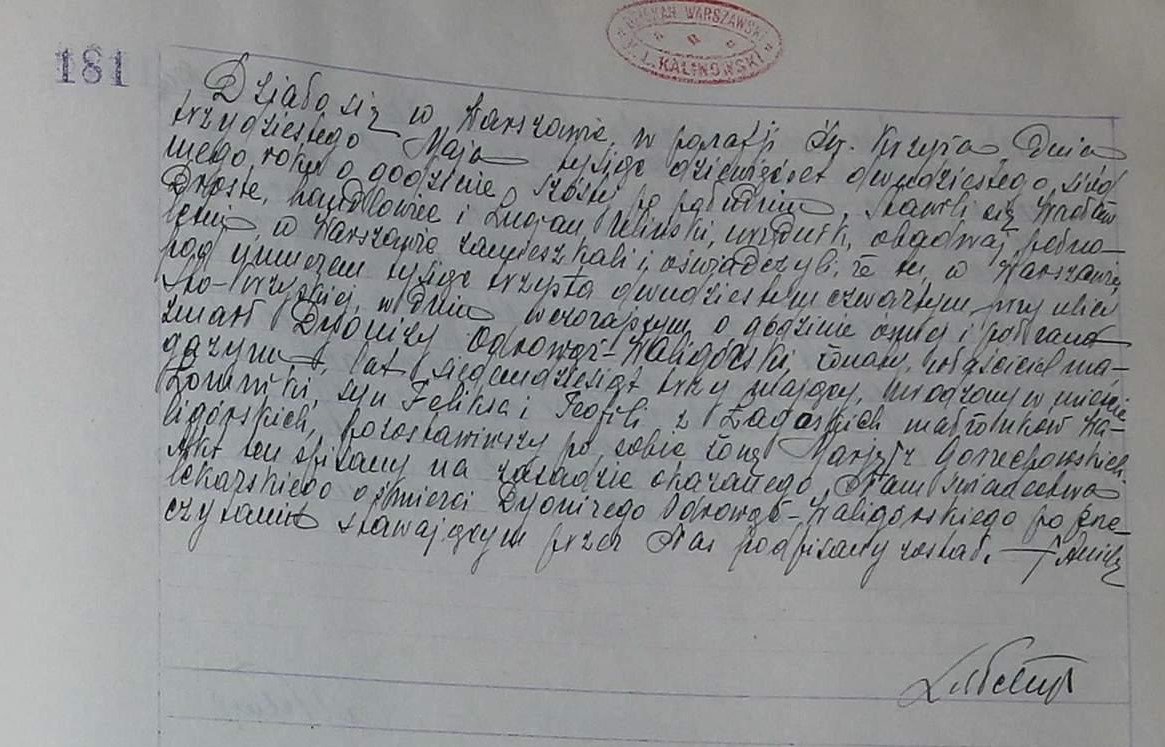 181
DZIEKAN WARSZAWSKI
L. KALINOWSKI
Działo się w Warszawie, w parafji Św. Krzyża, Dnia
trzydziestego Maja tysiąc dziewięćset dwudziestego siód-
mego roku o godzinie szóstej po południu. Stawili się Wacław
Droste, handlowiec i Lucjan Zieliński, urzędnik, obadwaj pełno-
letni, w Warszawie zamieszkali i oświadczyli, że tu, w Warszawie,
pod numerem tysiąc trzysta dwudziestem czwartym przy ulicy
Sto-Krzyskiej, w dniu wczorajszym o godzinie ósmej i pół rano
zmarł Dyonizy Odrowąż-Waligórski, żonaty, właściciel ma-
gazynu, lat siedemdziesiąt trzy mający, urodzony w mieście
syn Feliksa i Teofili z Zagórskich małżonków Wa-
ligórskich, pozostawiwszy po sobie żonę Marję z
Akt ten spisany na zasadzie okazanego Nam świadectwa
lekarskiego o śmierci Dyonizego Odrowąż-Waligórskiego po prze-
czytaniu stawającym przez Nas podpisany został. —